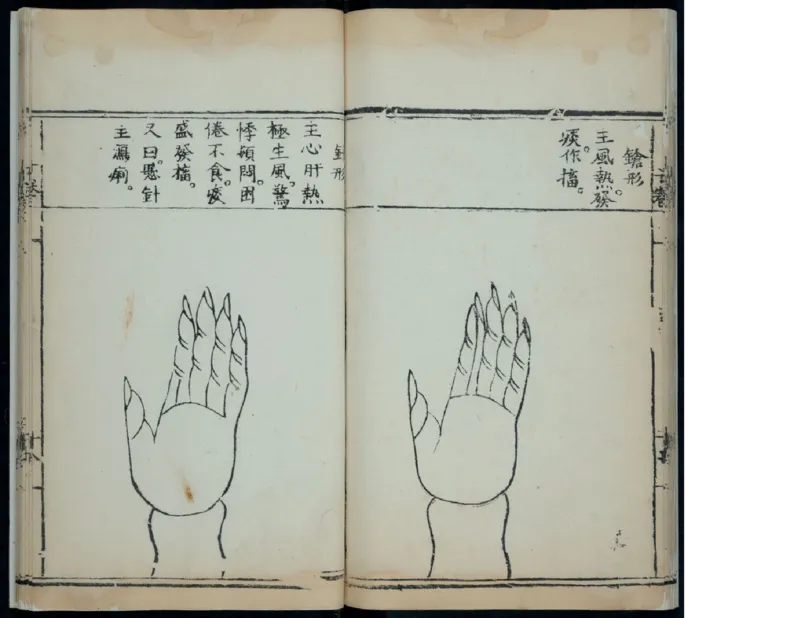 鎗形
主風熱。發
痰作搐。
鎗形
主心肝熱
極生風。驚
悸 悶。困
倦不食。痰
盛發搐。
又曰。懸針
主 痢。